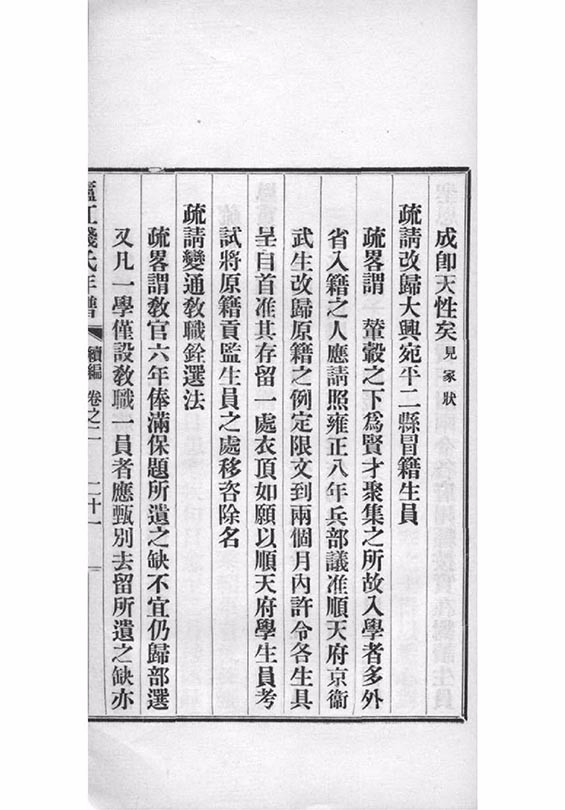 成卽天性矣見家狀
疏請改歸大興宛平二縣冒籍生員
疏畧謂　輦轂之下爲賢才聚集之所故入學者多外
省入籍之人應請照雍正八年兵部議准順天府京衞
武生改歸原籍之例定限文到兩個月內許令各生具
呈自首准其存留一處衣頂如願以順天府學生員考
試將原籍貢監生員之處移咨除名
疏請變通敎職銓選法
疏畧謂敎官六年俸滿保題所遺之缺不宜仍歸部選
又凡一學僅設敎職一員者應甄別去留所遺之缺亦
廬江錢氏年譜　續編　卷之二　二十一